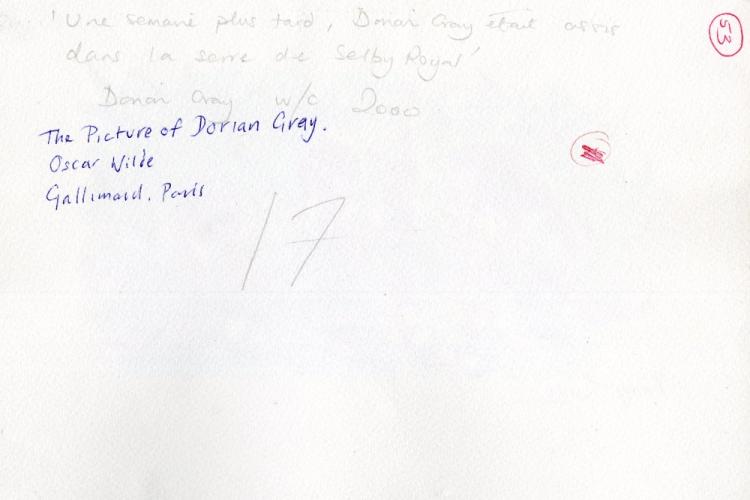 'Une semaine plus tard, Dorian Gray était assis
dans la serre de Selby Royal'
Dorian Gray w/c 2000
The Picture of Dorian Gray.
Oscar Wilde
Gallimard. Paris
17
53